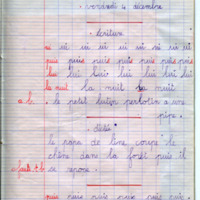 vendredi 4 décembre
écriture
ui ui ui ui ui ui ui ui ui
puis puis puis puis puis puis puis
lui lui lui lui lui lui lui
la nuit la nuit la nuit
a b. le petit lutin
a une
pipe.
Dictée
le papa de line coupe le
chêne dans la forêt puis il
se repose.
puis puis puis puis puis